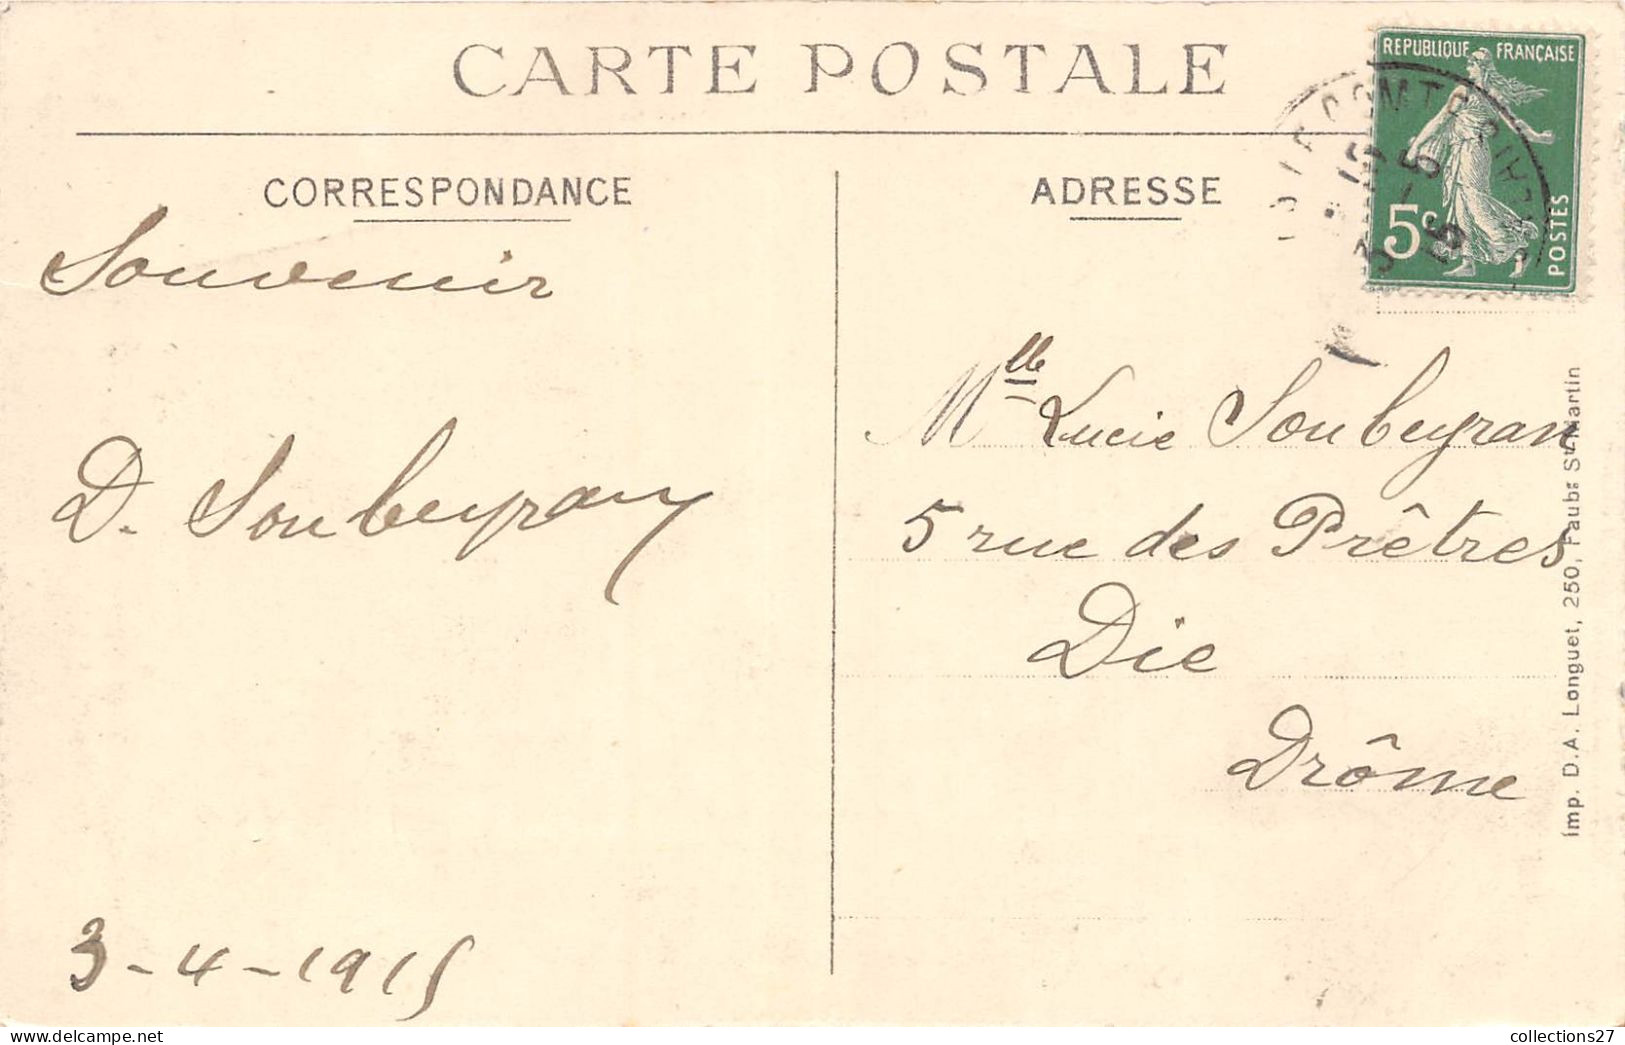 CARTE POSTALE
REPUBLIQUE FRANÇAISE
5c
POSTES
CORRESPONDANCE
ADRESSE
Souvenir
D. Soubeyran
3-4-1915
Mlle Lucie Soubeyran
5 rue des Prêtres
Die
Drôme
Imp. D.A. Longuet, 250, Faubg St Martin
collections27